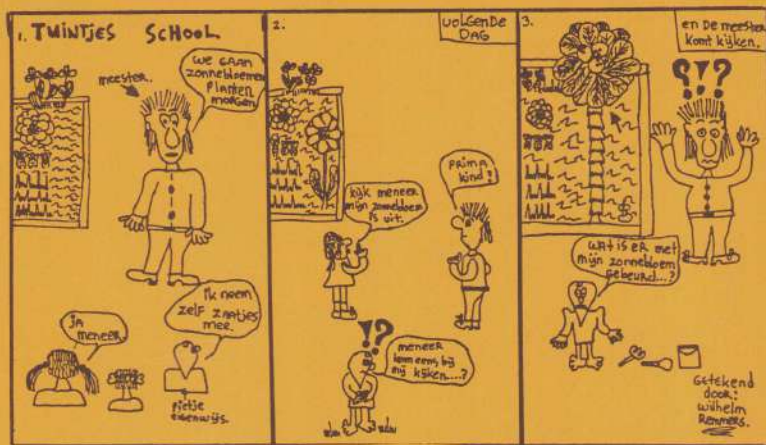 1. TUINTJES SCHOOL
meester.
WE GAAN
zonnebloemen
planten
morgen.
ja
meneer
ik neem
zelf zaatjes
mee.
pietje
eigenwijs.
2.
VOLGENDE
DAG
kijk meneer
mijn zonnebloem
is uit.
prima
kind!
!?
meneer
kom eens bij
mij kijken....?
3.
en de meester
komt kijken.
?!?
wat is er met
mijn zonnebloem
gebeurd...?
Getekend
door:
Wilhelm
Remmers.